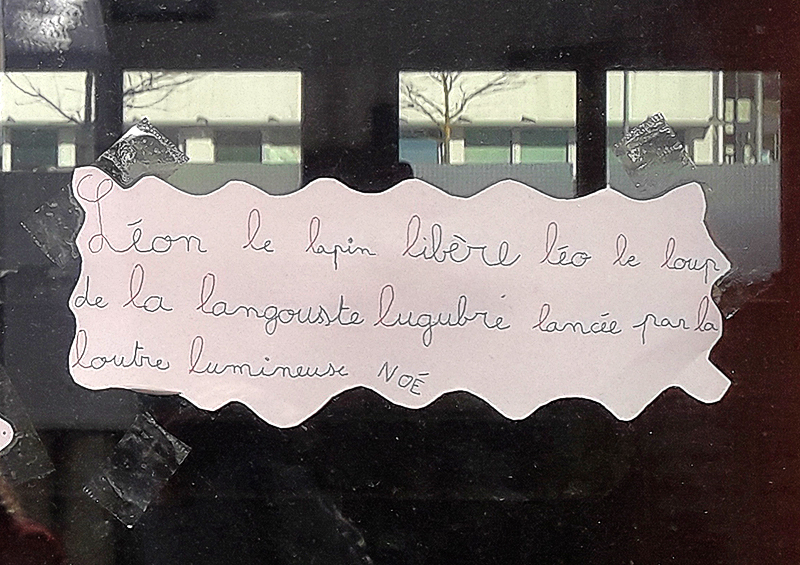 Léon le lapin libère léo le loup
de la langouste lugubre lancée par la
loutre lumineuse NOÉ